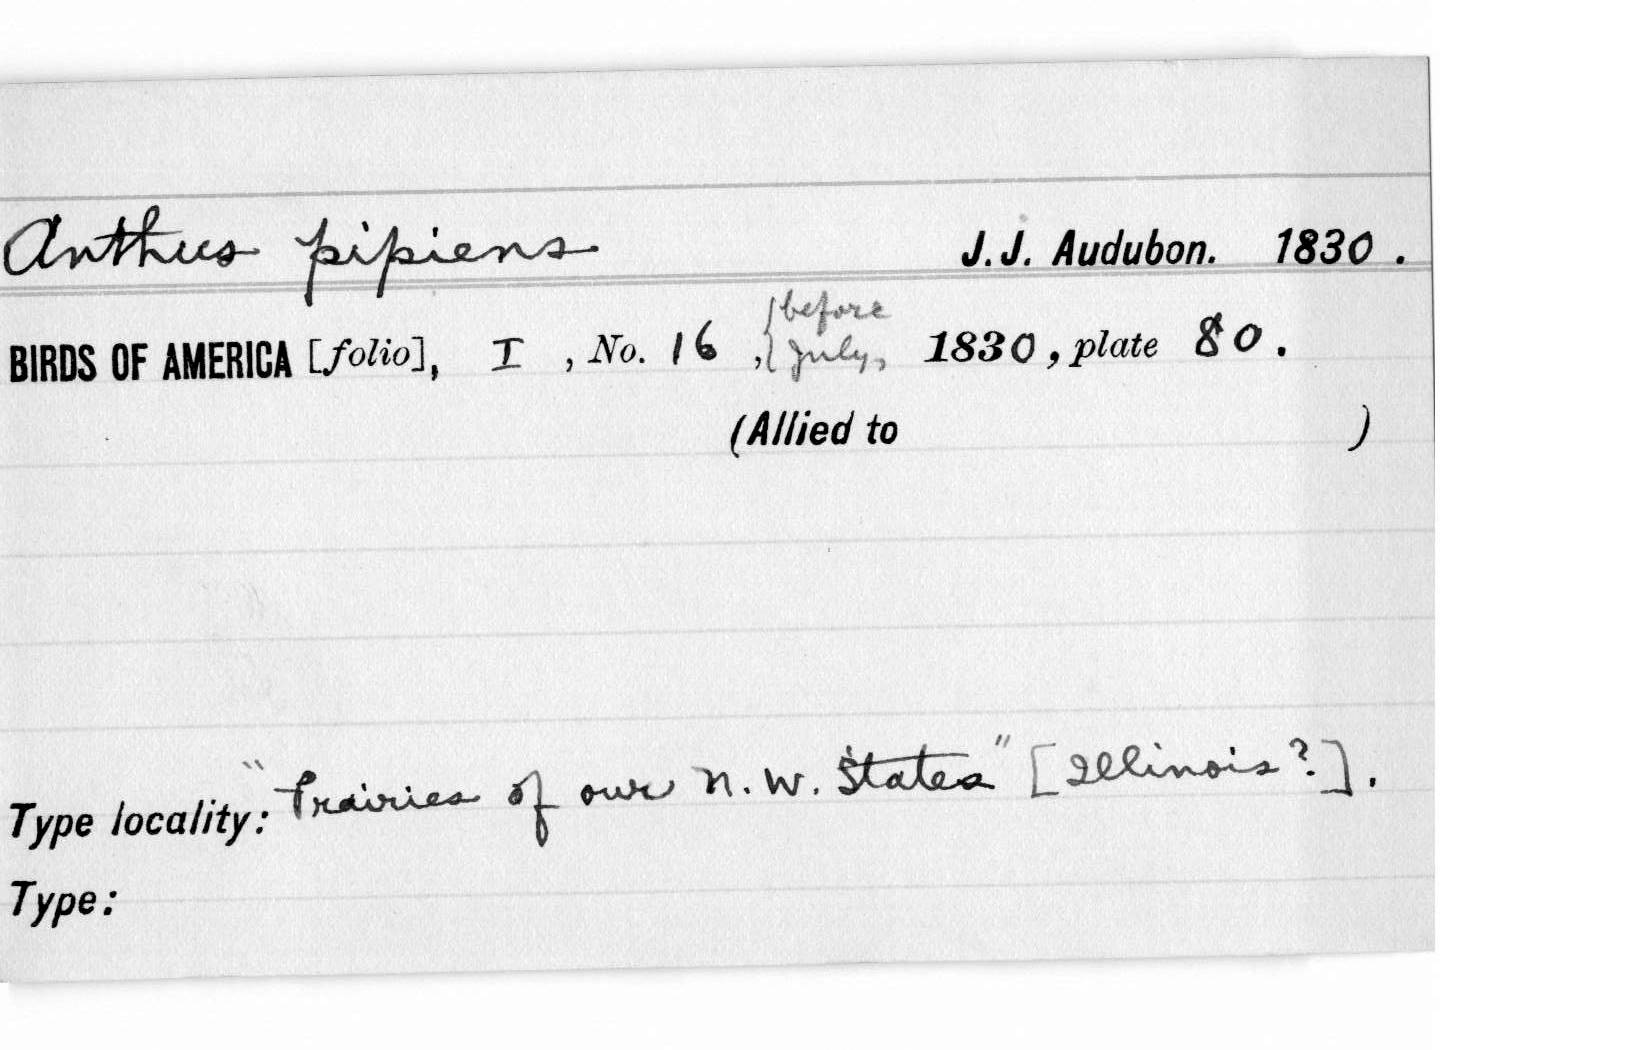 Anthus pipiens J. J. Audubon. 1830.
BIRDS OF AMERICA [folio], I, No. 16, {before July, 1830, plate 80.
(Allied to )
Type locality: "Prairies of our N. W. States" [Illinois?].
Type: